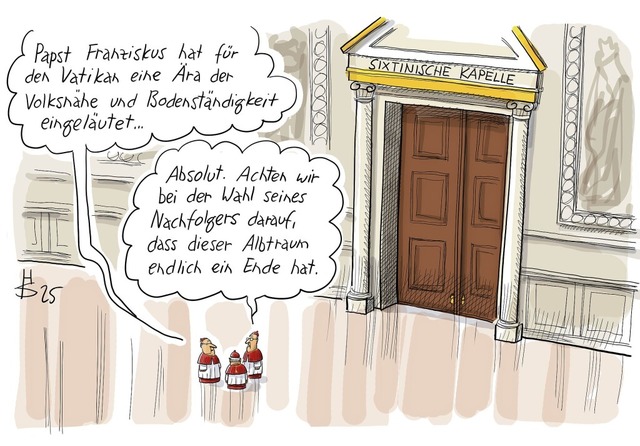 Papst Franziskus hat für
den Vatikan eine Ära der
Volksnähe und Bodenständigkeit
eingeläutet...
SIXTINISCHE KAPELLE
Absolut. Achten wir
bei der Wahl seines
Nachfolgers darauf,
dass dieser Albtraum
endlich ein Ende hat.
HS 25